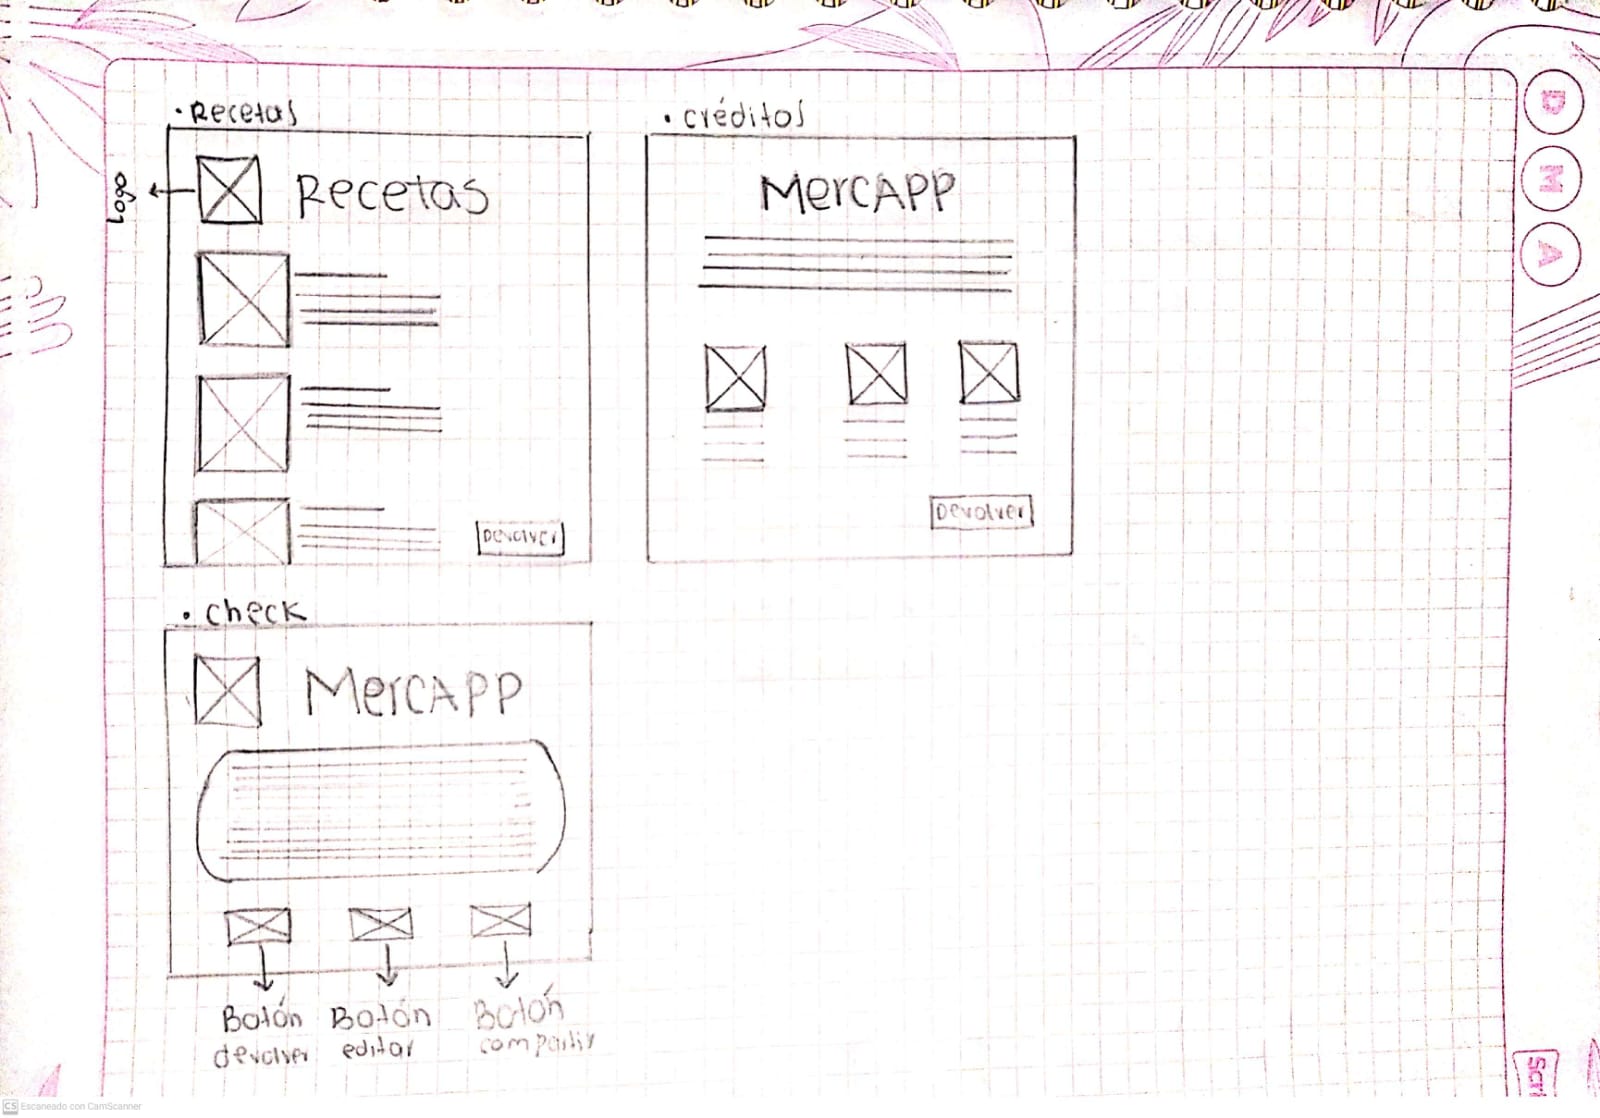 • Recetas
logo
Recetas
Devolver
• créditos
MercAPP
Devolver
• check
MercAPP
Botón devolver
Botón editar
Botón compartir
D
M
A
Scri
CS Escaneado con CamScanner